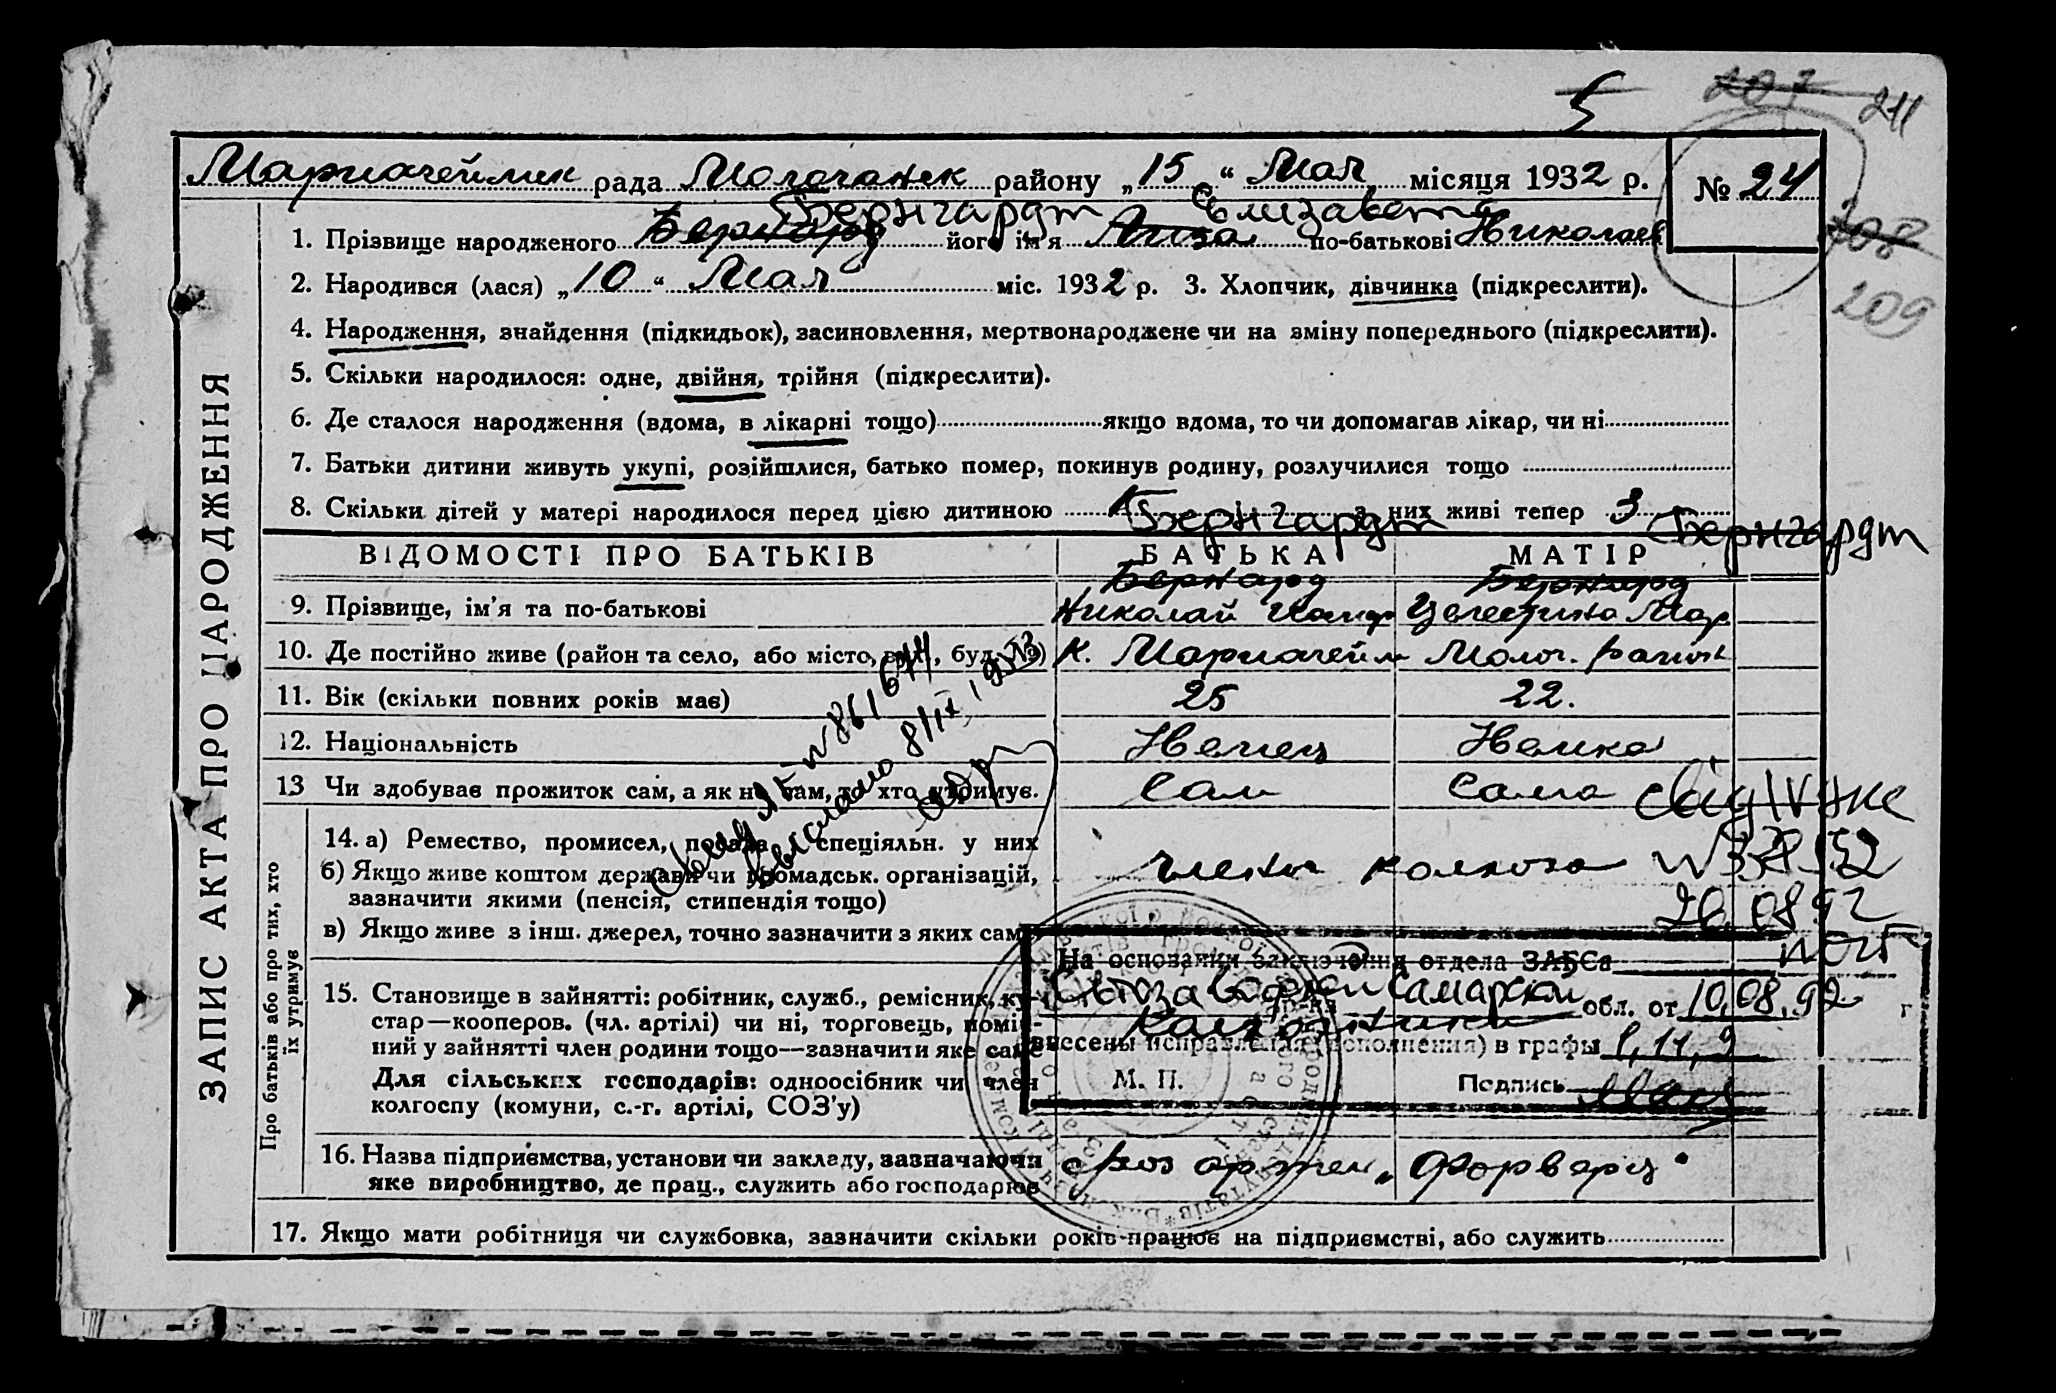 5 207 211
Мариагеймик рада Молочанск району „15“ Мая місяця 1932 р. № 24
Бернгардт Елизавета
1. Прізвище народженого Бернард його ім'я Лиза по-батькові Николаев
208
2. Народився (лася) „10“ Мая міс. 1932 р. 3. Хлопчик, дівчинка (підкреслити).
209
4. Народження, знайдення (підкидьок), засиновлення, мертвонароджене чи на зміну попереднього (підкреслити).
5. Скільки народилося: одне, двійня, трійня (підкреслити).
6. Де сталося народження (вдома, в лікарні тощо) якщо вдома, то чи допомагав лікар, чи ні
7. Батьки дитини живуть укупі, розійшлися, батько помер, покинув родину, розлучилися тощо
8. Скільки дітей у матері народилося перед цією дитиною з них живі тепер 3
Бернгардт Бернгардт
ВІДОМОСТІ ПРО БАТЬКІВ БАТЬКА МАТІР
Бернард Бернард
9. Прізвище, ім'я та по-батькові Николай Целестина
10. Де постійно живе (район та село, або місто, вул., буд. №) К. Мариагейм Молоч. району
11. Вік (скільки повних років має) 25 22.
12. Національність Немец Немка
13 Чи здобував прожиток сам, а як не сам, то хто утримує. Сам Сама
№ 861644
8/IX 1943
14. а) Ремество, промисел, посада, спеціяльн. у них члены колхоза
б) Якщо живе коштом держави чи громадськ. організацій,
зазначити якими (пенсія, стипендія тощо)
в) Якщо живе з інш. джерел, точно зазначити з яких саме
свід IV-ЖС
20.08.92
15. Становище в зайнятті: робітник, служб., ремісник, ку-
стар—кооперов. (чл. артілі) чи ні, торговець, поміс-
ний у зайнятті член родини тощо—зазначити яке саме
Для сільських господарів: одноосібник чи член
колгоспу (комуни, с.-г. артілі, СОЗ'у)
Колхозники
На основании заключения отдела ЗАГСа
Самарской обл. от 10.08.92 г
внесены исправления (дополнения) в графы 1, 11, 9
М. П. Подпись
16. Назва підприємства, установи чи закладу, зазначаючи
яке виробництво, де прац., служить або господарює
артел „Форвертс“
17. Якщо мати робітниця чи службовка, зазначити скільки років працює на підприємстві, або служить
ЗАПИС АКТА ПРО НАРОДЖЕННЯ
Про батьків або про тих, хто
їх утримує